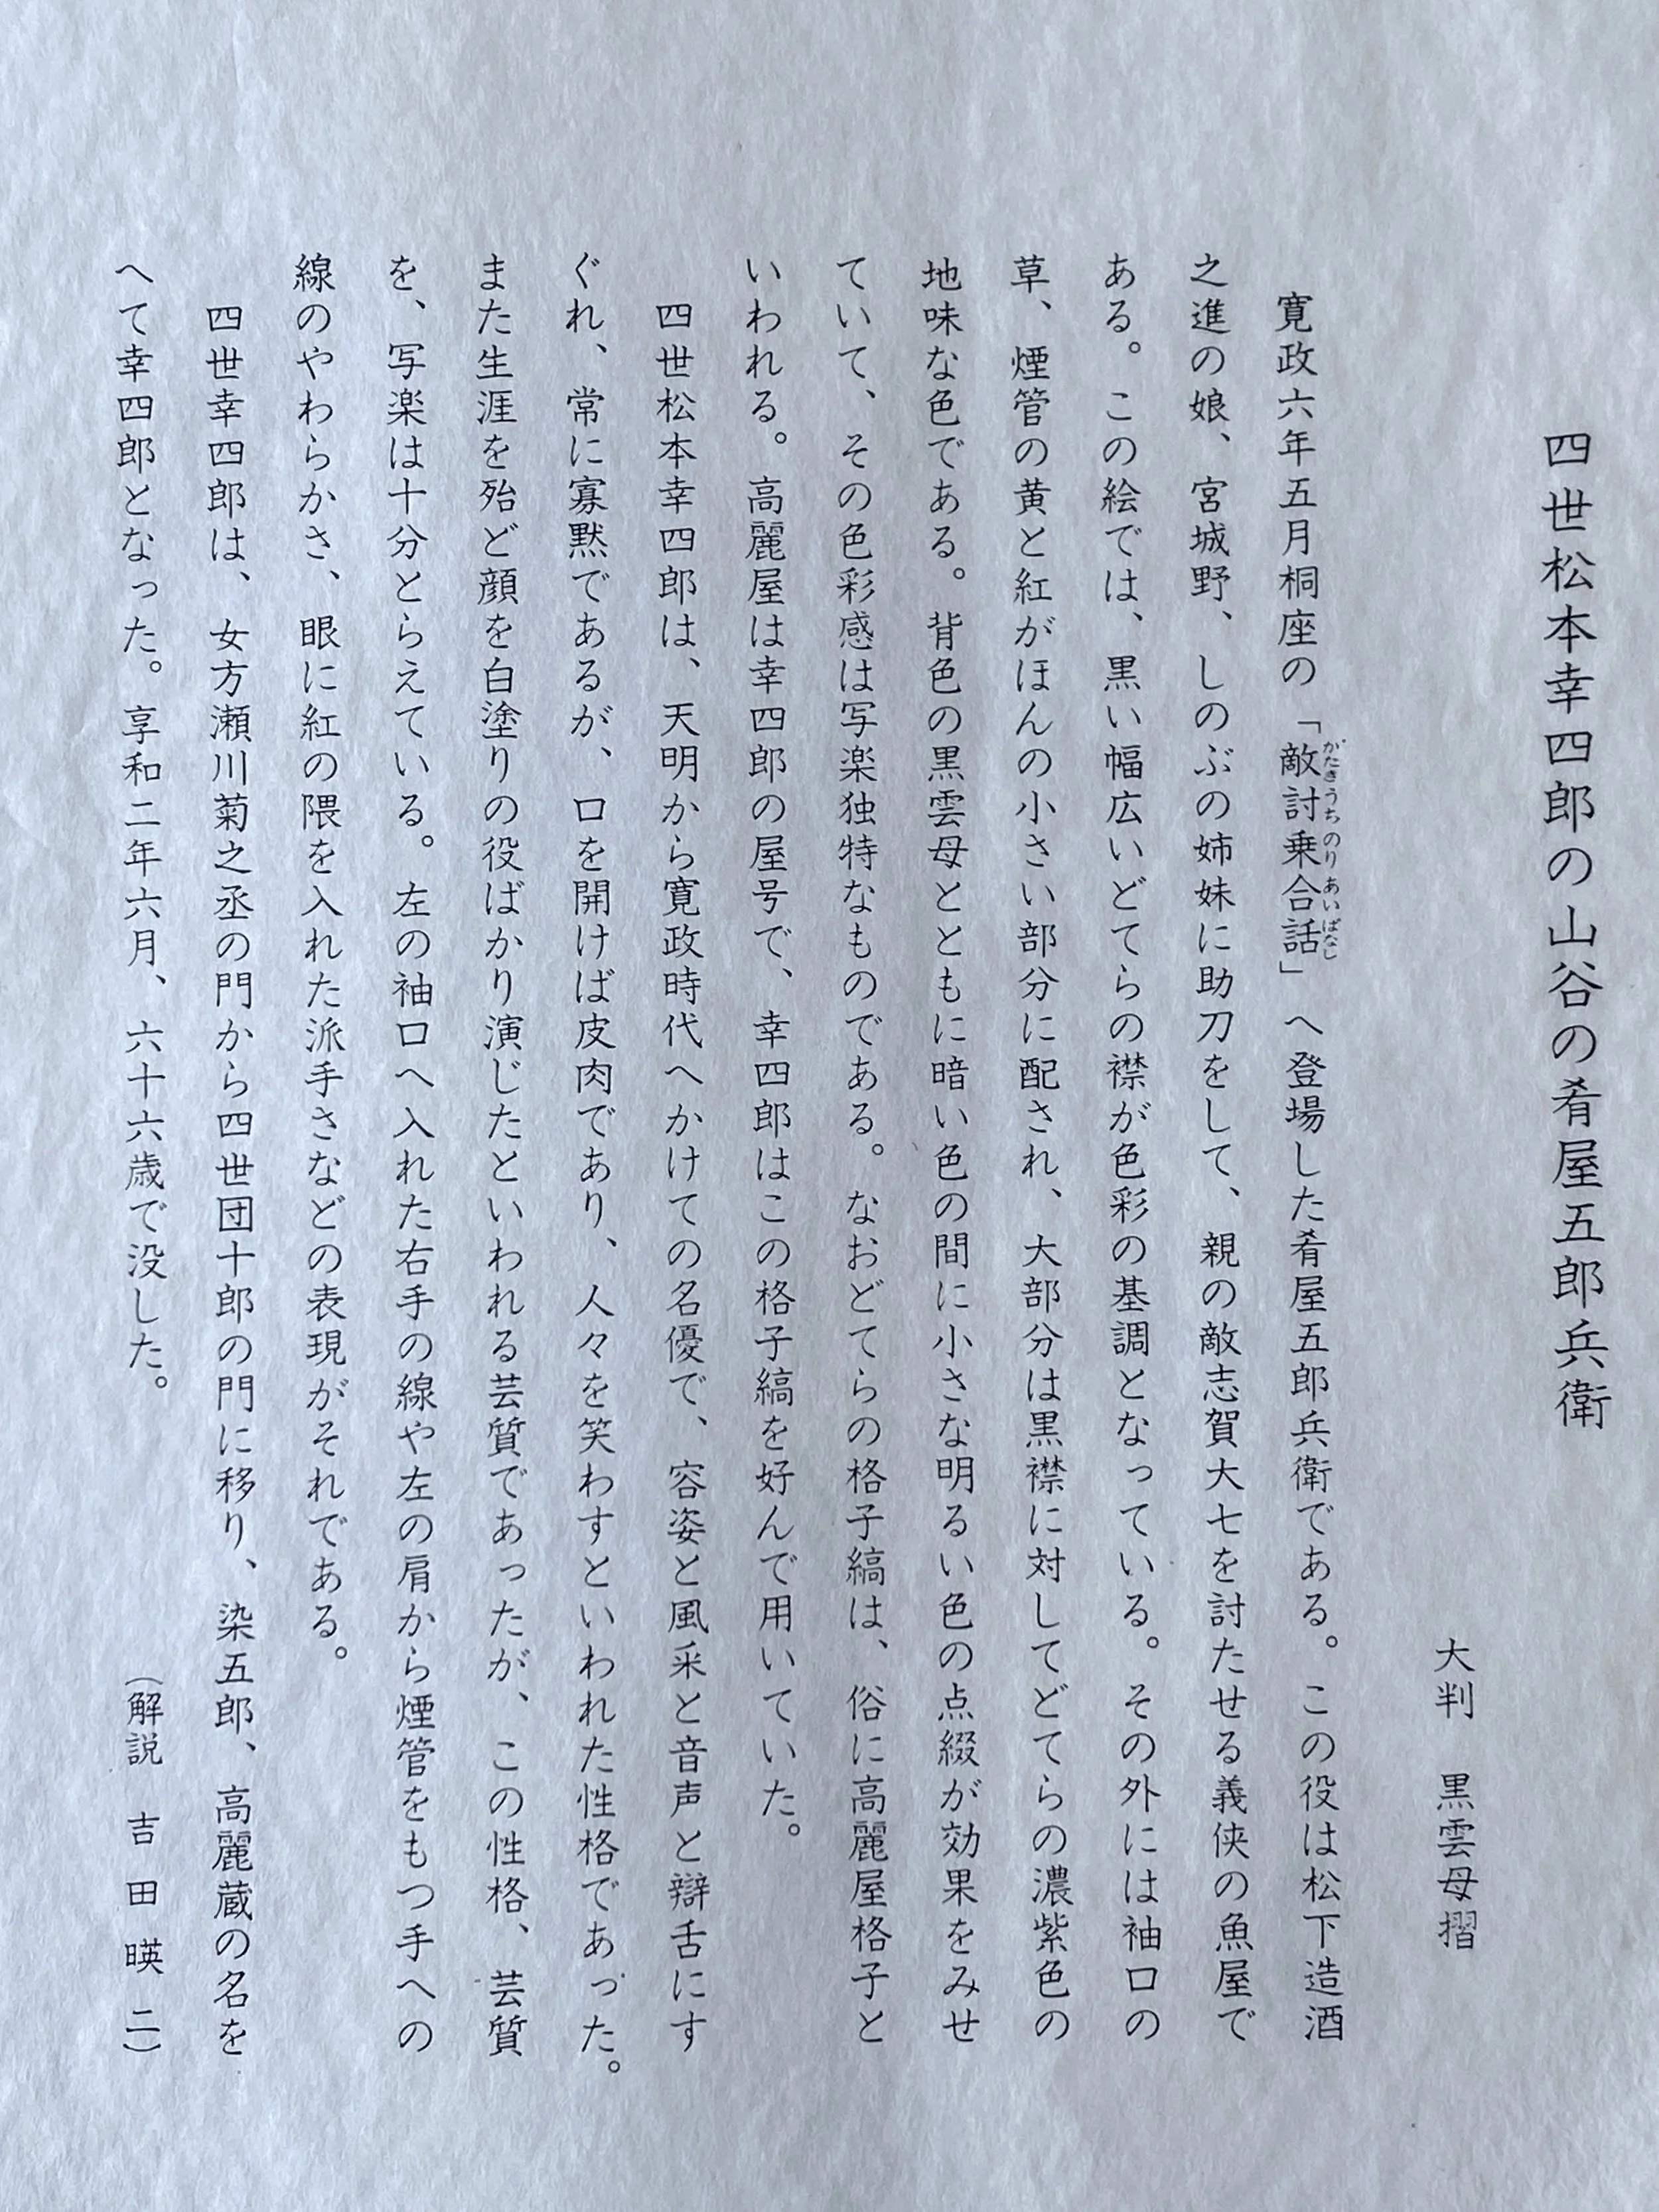 四世松本幸四郎の山谷の肴屋五郎兵衛
大判　黒雲母摺
寛政六年五月桐座の「敵討乗合話」へ登場した肴屋五郎兵衛である。この役は松下造酒
がたきうちのりあいばなし
之進の娘、宮城野、しのぶの姉妹に助刀をして、親の敵志賀大七を討たせる義侠の魚屋で
ある。この絵では、黒い幅広いどてらの襟が色彩の基調となっている。その外には袖口の
草、煙管の黄と紅がほんの小さい部分に配され、大部分は黒襟に対してどてらの濃紫色の
地味な色である。背色の黒雲母とともに暗い色の間に小さな明るい色の点綴が効果をみせ
ていて、その色彩感は写楽独特なものである。なおどてらの格子縞は、俗に高麗屋格子と
いわれる。高麗屋は幸四郎の屋号で、幸四郎はこの格子縞を好んで用いていた。
四世松本幸四郎は、天明から寛政時代へかけての名優で、容姿と風采と音声と辯舌にす
ぐれ、常に寡黙であるが、口を開けば皮肉であり、人々を笑わすといわれた性格であった。
また生涯を殆ど顔を白塗りの役ばかり演じたといわれる芸質であったが、この性格、芸質
を、写楽は十分とらえている。左の袖口へ入れた右手の線や左の肩から煙管をもつ手への
線のやわらかさ、眼に紅の隈を入れた派手さなどの表現がそれである。
四世幸四郎は、女方瀬川菊之丞の門から四世団十郎の門に移り、染五郎、高麗蔵の名を
へて幸四郎となった。享和二年六月、六十六歳で没した。
（解説　吉田暎二）